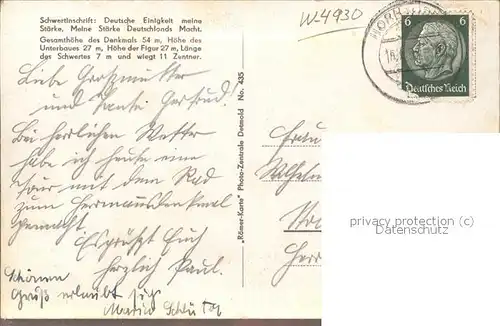 Schwertinschrift: Deutsche Einigkeit meine
Stärke, Meine Stärke Deutschlonds Macht.
Gesamthöhe des Denkmals 54 m, Höhe des
Unterbaues 27 m, Höhe der Figur 27 m, Länge
des Schwertes 7 m und wiegt 11 Zentner.
W4930
6 6
Deutsches Reich
Liebe Großmutter
und Tante Gertrud!
Bei herrlichen Wetter
hab ich heute eine
Tour mit dem Rad
zum Hermannsdenkmal
gemacht.
Es grüßt Euch
herzlich Paul.
Schönen
Gruß erlaubt sich
Maria
"Römer-Karte" Photo-Zentrale Detmold No. 435
Frau
Wilhelm
Herr
privacy protection ©
ansichtskarten-center.de